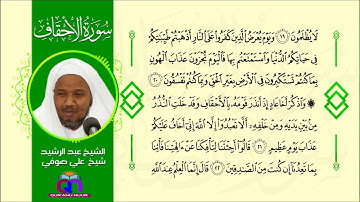 سُورَةُ الأَحْقَافِ
لَا يُظْلَمُونَ ١٩ وَيَوْمَ يُعْرَضُ الَّذِينَ كَفَرُوا عَلَى النَّارِ أَذْهَبْتُمْ طَيِّبَاتِكُمْ
فِي حَيَاتِكُمُ الدُّنْيَا وَاسْتَمْتَعْتُم بِهَا فَالْيَوْمَ تُجْزَوْنَ عَذَابَ الْهُونِ
بِمَا كُنتُمْ تَسْتَكْبِرُونَ فِي الْأَرْضِ بِغَيْرِ الْحَقِّ وَبِمَا كُنتُمْ تَفْسُقُونَ ٢٠
۞ وَاذْكُرْ أَخَا عَادٍ إِذْ أَنذَرَ قَوْمَهُ بِالْأَحْقَافِ وَقَدْ خَلَتِ النُّذُرُ
مِن بَيْنِ يَدَيْهِ وَمِنْ خَلْفِهِ أَلَّا تَعْبُدُوا إِلَّا اللَّهَ إِنِّي أَخَافُ عَلَيْكُمْ
عَذَابَ يَوْمٍ عَظِيمٍ ٢١ قَالُوا أَجِئْتَنَا لِتَأْفِكَنَا عَنْ آلِهَتِنَا فَأْتِنَا
بِمَا تَعِدُنَا إِن كُنتَ مِنَ الصَّادِقِينَ ٢٢ قَالَ إِنَّمَا الْعِلْمُ عِندَ اللَّهِ
الشيخ عبد الرشيد
شيخ علي صوفي
QUR'ANU NUUR